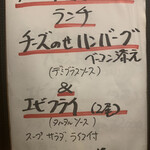 ランチ
チーズのせハンバーグ
ベーコン添え
(デミグラスソース)
&
エビフライ (2尾)
(タルタルソース)
スープ サラダ ライス付